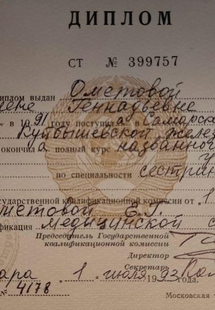 ДИПЛОМ
СТ № 399757
диплом выдан Ометовой
Геннадьевне
в 1991 году поступил а в Самарское
Куйбышевской желез
окончил а полный курс названного
по специальности сестрин
государственной квалификационной комиссии от 1
Ометовой Е.Г.
медицинской с
Председатель Государственной
квалификационной комиссии
Директор
Секретарь
1 июля 1993
№ 4178
Московская